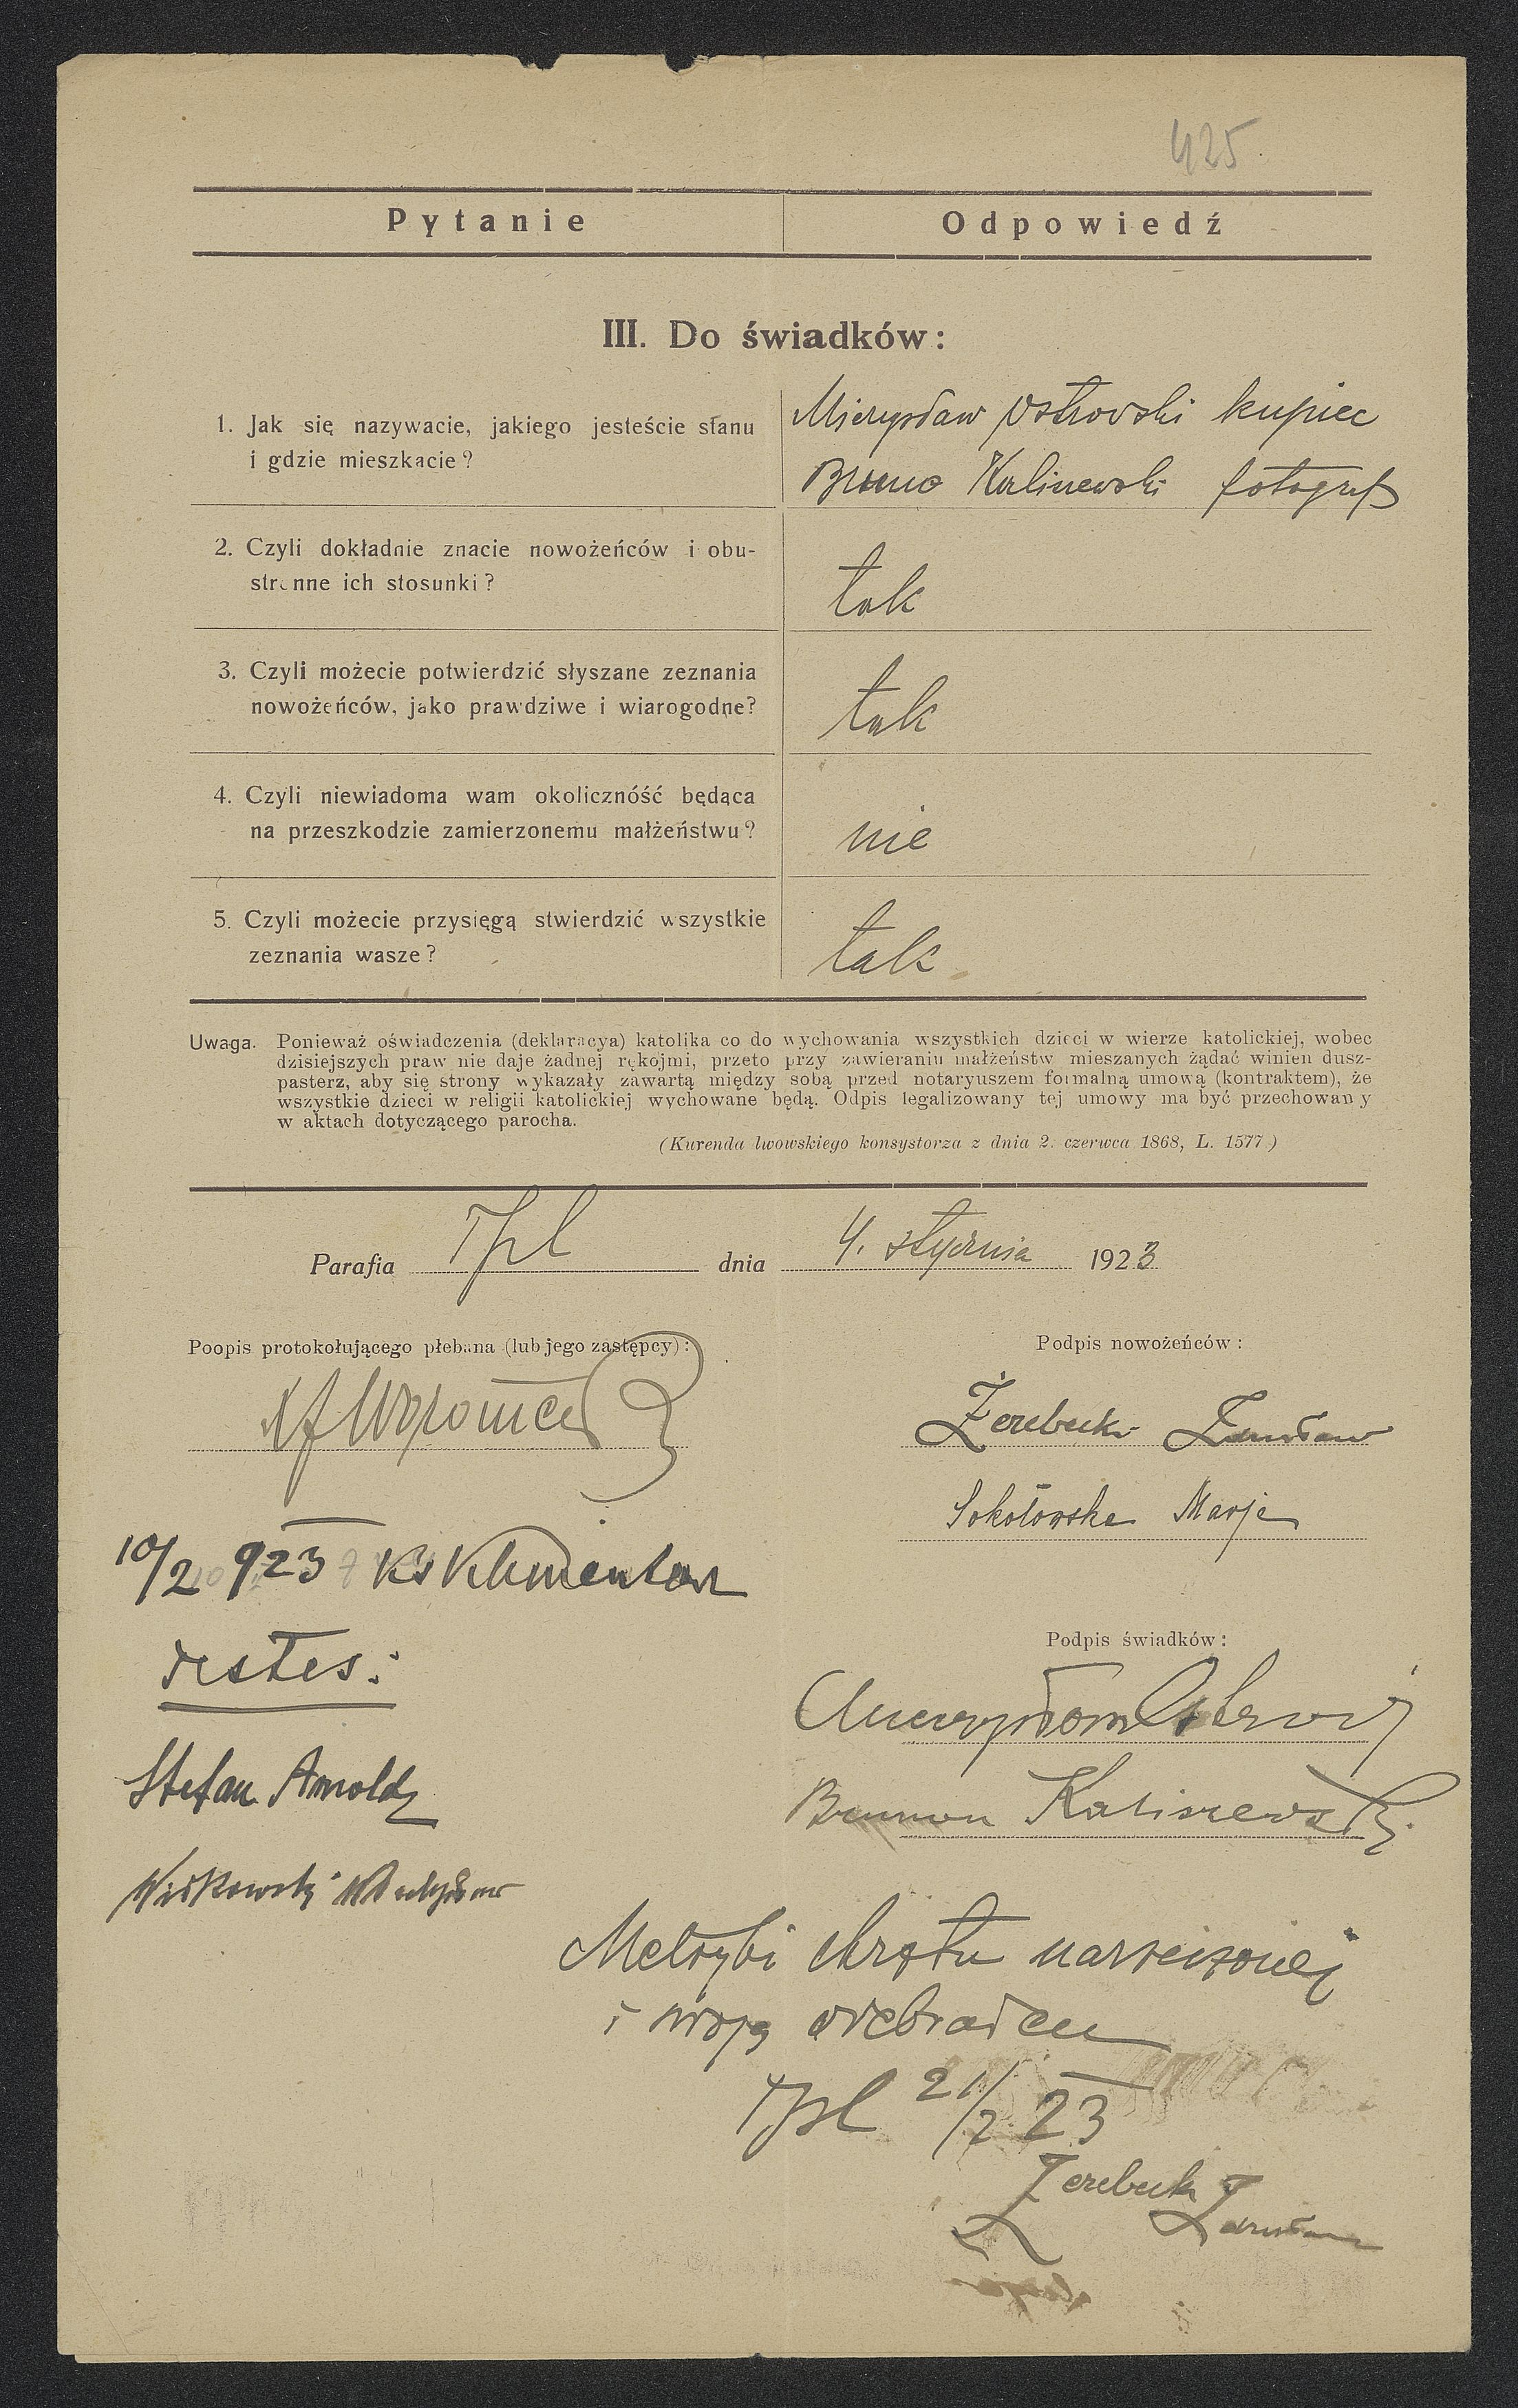 425
Pytanie
Odpowiedź
III. Do świadków:
1. Jak się nazywacie, jakiego jesteście stanu
i gdzie mieszkacie?
Mieczysław Ostrowski kupiec
Bruno Kaliszewski fotograf
2. Czyli dokładnie znacie nowożeńców i obu-
stronne ich stosunki?
tak
3. Czyli możecie potwierdzić słyszane zeznania
nowożeńców, jako prawdziwe i wiarogodne?
tak
4. Czyli niewiadoma wam okolicznóść będąca
na przeszkodzie zamierzonemu małżeństwu?
nie
5. Czyli możecie przysięgą stwierdzić wszystkie
zeznania wasze?
tak
Uwaga. Ponieważ oświadczenia (deklaracya) katolika co do wychowania wszystkich dzieci w wierze katolickiej, wobec
dzisiejszych praw nie daje żadnej rękojmi, przeto przy zawieraniu małżeństw mieszanych żądać winien dusz-
pasterz, aby się strony wykazały zawartą między sobą przed notaryuszem formalną umową (kontraktem), że
wszystkie dzieci w religii katolickiej wychowane będą. Odpis legalizowany tej umowy ma być przechowany
w aktach dotyczącego parocha.
(Kurenda lwowskiego konsystorza z dnia 2. czerwca 1868, L. 1577)
Parafia Tpl dnia 4. stycznia 1923
Poopis protokołującego plebana (lub jego zastępcy):
Podpis nowożeńców:
Żerebecki Zdzisław
Sokołowska Marja
10/2 923 Ks Klementow
testes:
Podpis świadków:
Mieczysław Ostrowski
Brunon Kaliszewski
Stefan Arnold
Witkowski Władysław
Metryki chrztu narzeczonej
i moją odebrałem
Tpl 21/2 23
Żerebecki Zdzisław